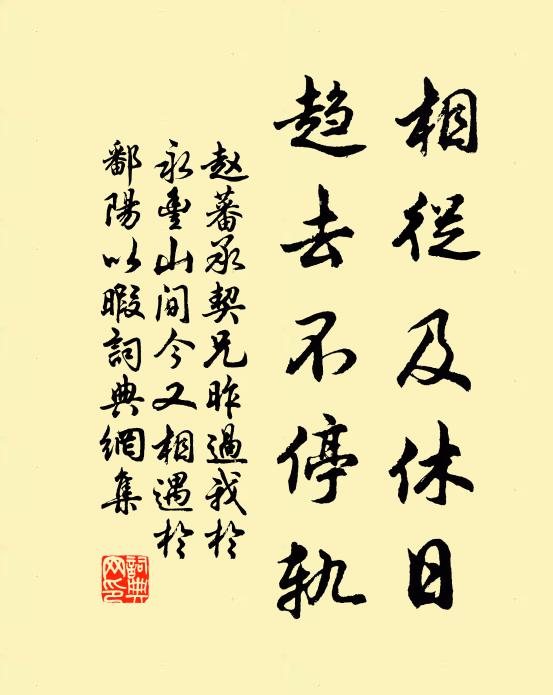 相從及休日
趨去不停軌
赵蕃承契兄昨過我於
永豐山间今又相遇於
鄱陽以暇詞典網集
詞典
网印